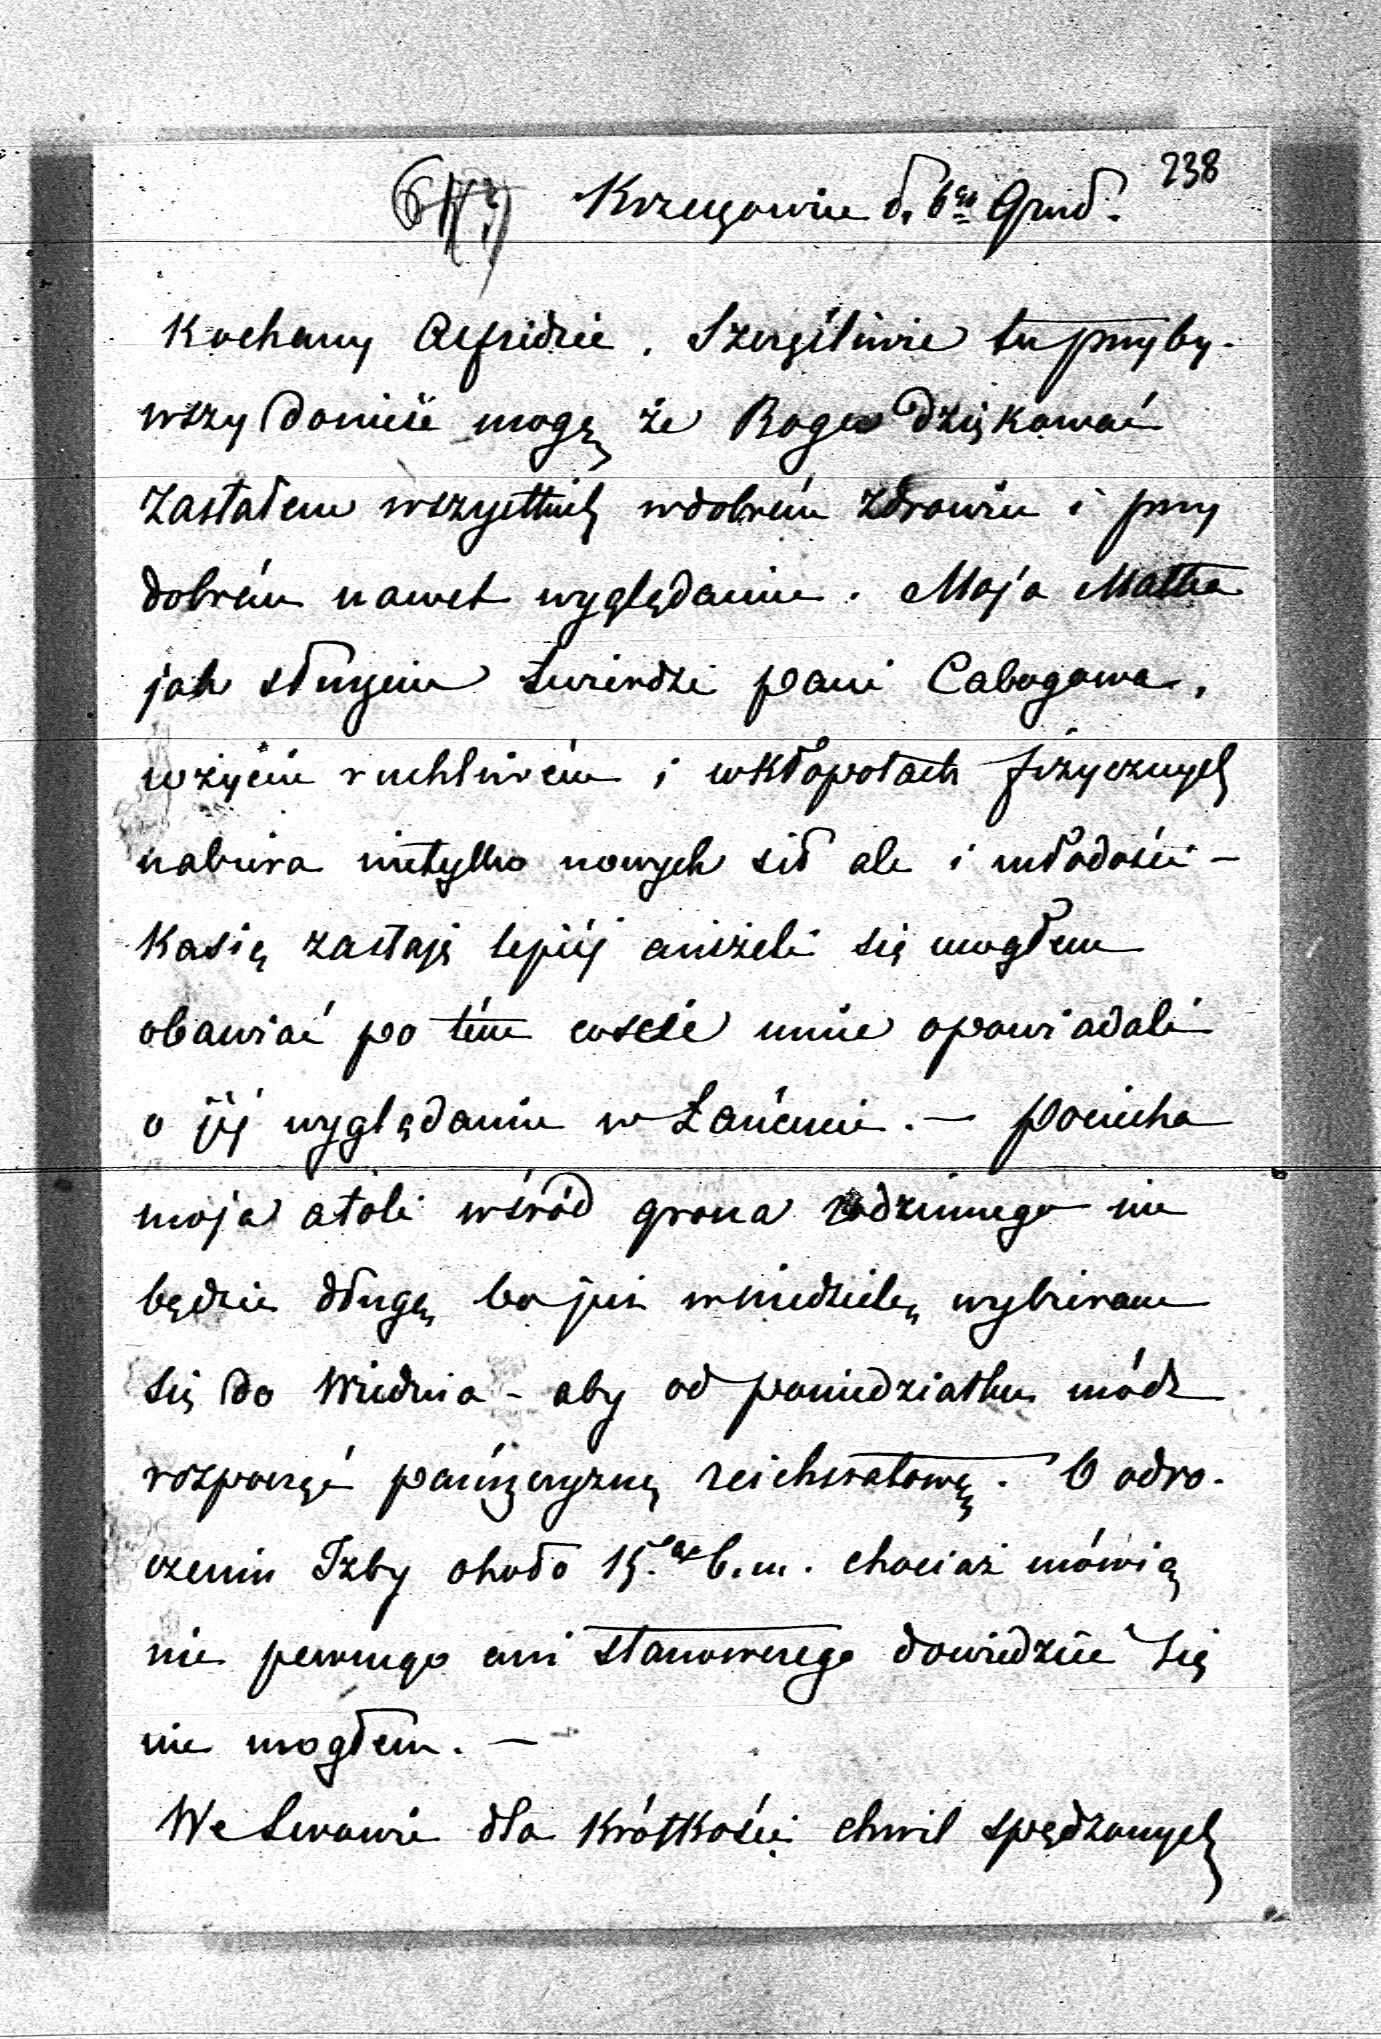 238
Krzeszowice d. 6go Grud.
Kochany Alfredzie. Szczęśliwie tu przyby-
wszy donieść mogę że Bogu dziękować
zastałem wszystkich w dobrém zdrowiu i przy
dobrém nawet wyglądaniu. Moja Matka
jak słusznie twierdzi pani Cabogowa,
w życiu ruchliwém i w kłopotach fizycznych
nabiera nietylko nowych sił ale i młodości –
Kasię zastaję lepiéj aniżeli się mogłem
obawiać po tém coście mnie opowiadali
o jéj wyglądaniu w Łańcucie. – Pociecha
moja atoli wśród grona rodzinnego nie
będzie długą bo już w niedzielę wybieram
się do Wiednia – aby od poniedziałku módz
rozpocząć pańszczyznę reichsratową. O odro-
czeniu Izby około 15.go b.m. chociaż mówią
nic pewnego ani stanowczego dowiedzieć się
nie mogłem. –
We Lwowie dla krótkości chwil spędzonych